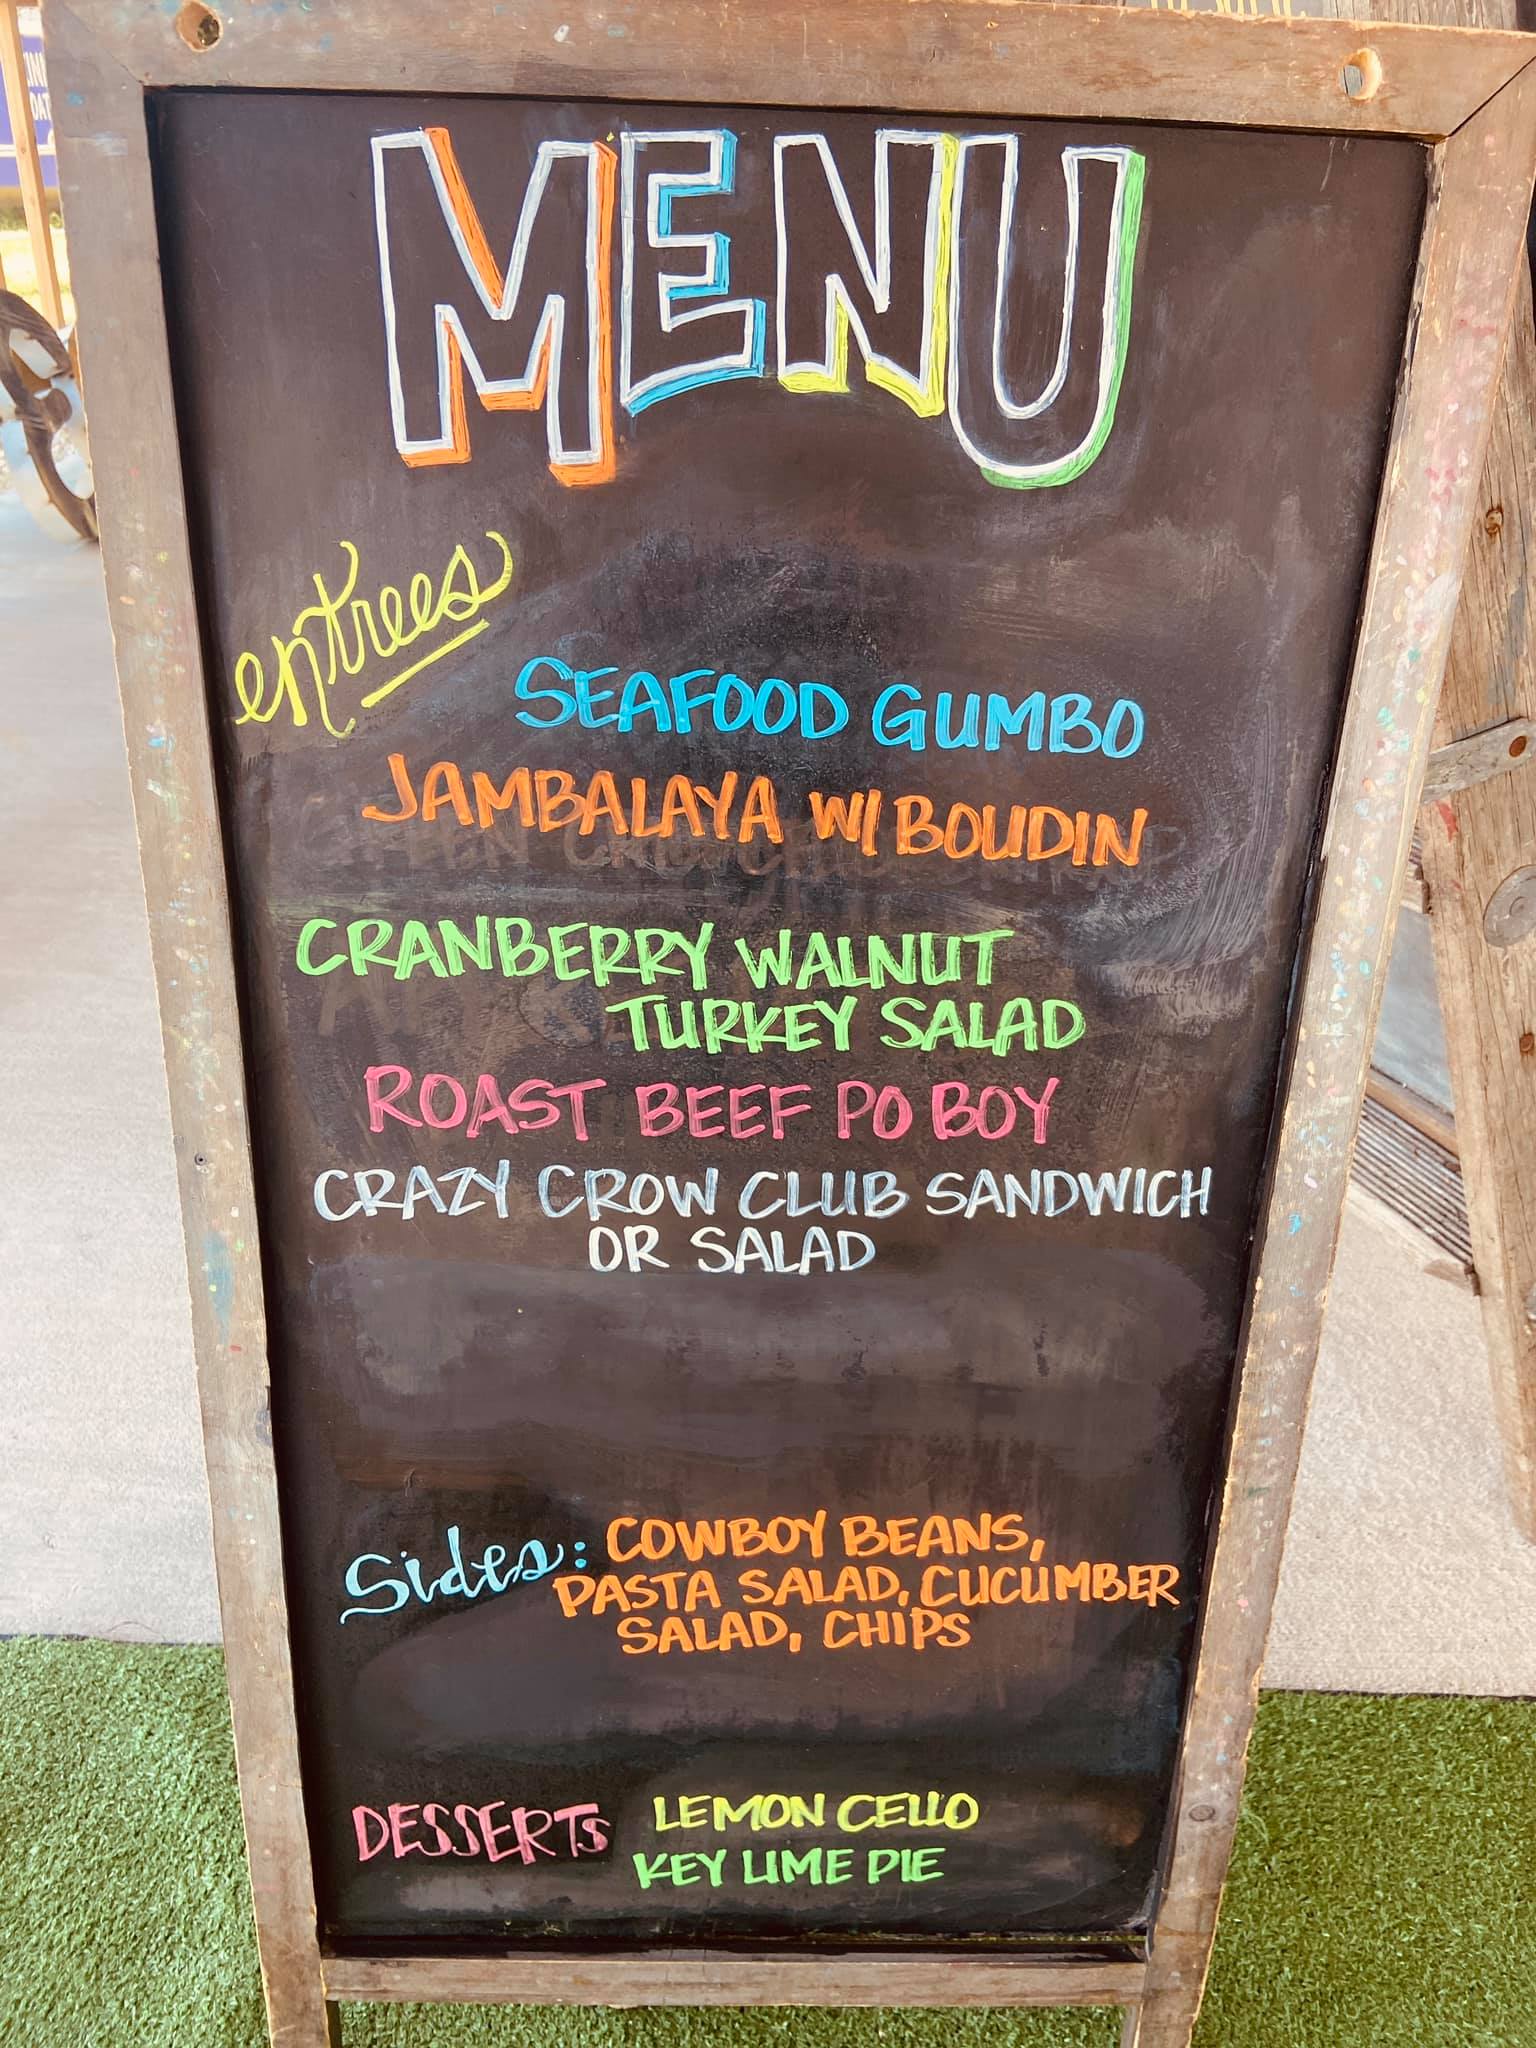 MENU
entrees
SEAFOOD GUMBO
JAMBALAYA W/ BOUDIN
CRANBERRY WALNUT
TURKEY SALAD
ROAST BEEF PO BOY
CRAZY CROW CLUB SANDWICH
OR SALAD
Sides: COWBOY BEANS,
PASTA SALAD, CUCUMBER
SALAD, CHIPS
DESSERTS LEMON CELLO
KEY LIME PIE